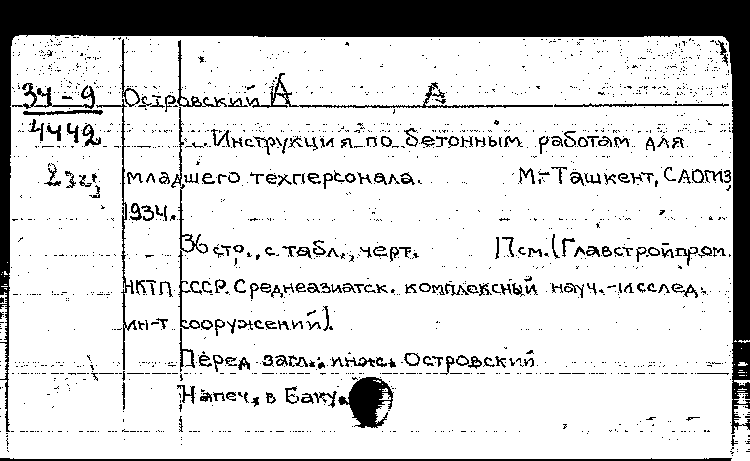 34-9 Островский А А
4442 ...Инструкция по бетонным работам для
2 экз младшего техперсонала. М.-Ташкент, САОГИЗ
1934.
36 стр., с табл., черт. 17см. (Главстройпром.
НКТП СССР. Среднеазиатск. комплексный науч.-исслед.
ин-т сооружений).
Перед загл.: инж. Островский
Напеч. в Баку.